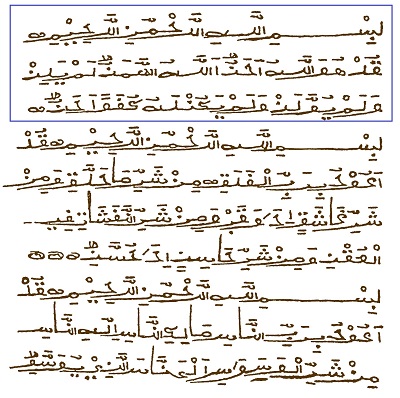 بِسْمِ اللَّهِ الرَّحْمَٰنِ الرَّحِيمِ
قُلْ هُوَ اللَّهُ أَحَدٌ اللَّهُ الصَّمَدُ لَمْ يَلِدْ
وَلَمْ يُولَدْ وَلَمْ يَكُن لَّهُ كُفُؤًا أَحَدٌ
بِسْمِ اللَّهِ الرَّحْمَٰنِ الرَّحِيمِ قُلْ
أَعُوذُ بِرَبِّ الْفَلَقِ مِنْ شَرِّ مَا خَلَقَ وَمِنْ
شَرِّ غَاسِقٍ إِذَا وَقَبَ وَمِنْ شَرِّ النَّفَّاثَاتِ فِي
الْعُقَدِ وَمِنْ شَرِّ حَاسِدٍ إِذَا حَسَدَ
بِسْمِ اللَّهِ الرَّحْمَٰنِ الرَّحِيمِ قُلْ
أَعُوذُ بِرَبِّ النَّاسِ مَلِكِ النَّاسِ إِلَٰهِ النَّاسِ
مِنْ شَرِّ الْوَسْوَاسِ الْخَنَّاسِ الَّذِي يُوَسْوِسُ